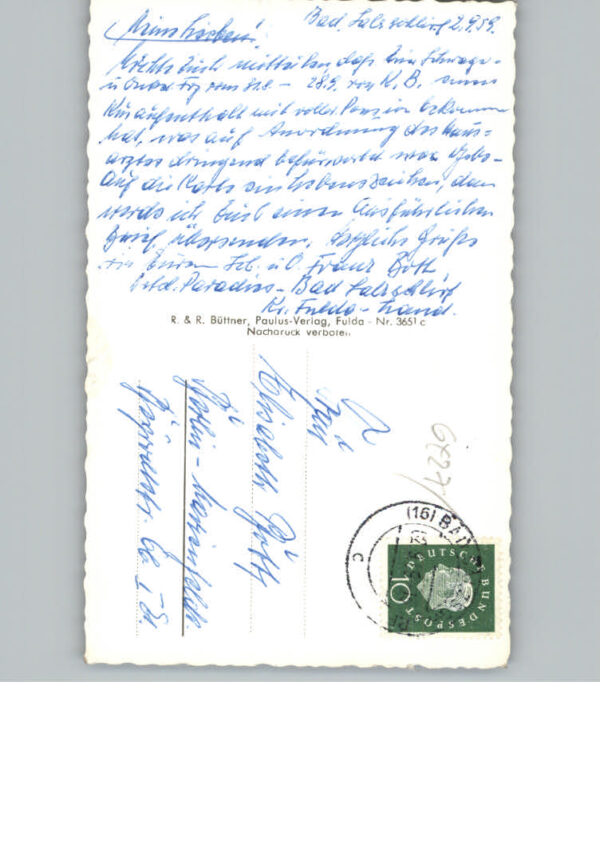 Bad Salzschlirf 2.9.59.
Meine Lieben!
Möchte Euch mitteilen, daß Euer Schwager
u. Onkel Frz vom 31.8. - 28.9. von K. B. einen
Kuraufenthalt mit voller Pension bekommen
hat, was auf Anordnung des Haus-
arztes dringend befürwortet war. Gebe
auf die Karte ein Lebenszeichen, dann
werde ich Euch einen ausführlichen
Brief übersenden. Herzliche Grüße
Euren u. O. Franz Bott
Paradies - Bad Salzschlirf
Kr. Fulda - Land.
R. & R. Büttner, Paulus-Verlag, Fulda - Nr. 3651 c
Nachdruck verboten
Frau
Elisabeth
Berlin - Marienfelde
6227
(16) BAD
c
DEUTSCHE BUNDESPOST
10